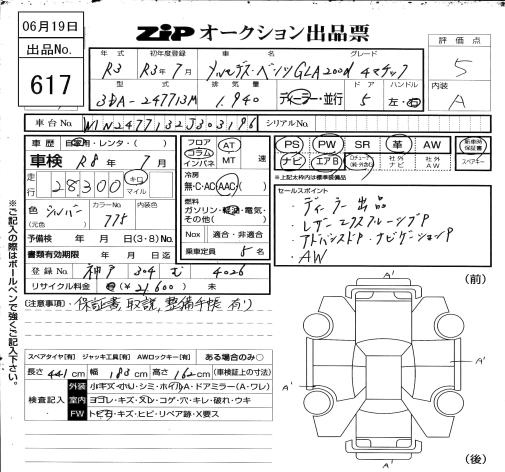 06月19日
出品No.
617
ZIP オークション出品票
年式 初年度登録 車名 グレード 評価点
R3 R3年7月 メルセデス・ベンツGLA200d 4マチック 5
型式 排気量 ドア ハンドル 内装
3DA-247713M 1,940 ディーラー・並行 5 左・右 A
車台No. シリアルNo.
車歴 自家用・レンタ・( )
車検 R8年7月
走行 28,300 キロ マイル
色 シルバー カラーNo. 775 内装色
(元色)
予備検 年 月 日(3・8)No.
書類有効期限 年 月 日迄
登録No. 神戸 304 む 4026
リサイクル料金 有(¥21,600) 未
フロア AT
コラム
インパネ MT 速
冷房
無・C・AC・AAC
燃料
ガソリン・軽油・電気・
その他( )
Nox 適合・非適合
乗車定員 5名
PS PW SR 革 AW 新車時保証書
ナビ エアB 社外ナビ 社外AW スペアキー
↑上記太枠内は標準装備品
セールスポイント
・ディーラー出品
・レザーエクスクルーシブP
・アドバンスドP・ナビゲーションP
・AW
※ご記入の際はボールペンで強くご記入下さい。
(注意事項) 保証書、取説、整備手帳有り
スペアタイヤ[有] ジャッキ工具[有] AWロックキー[有] ある場合のみ○
長さ 441cm 幅 183cm 高さ 162cm (車検証上の寸法)
検査記入
外装 小キズ・小凹・シミ・ホイルA・ドアミラー(A・ワレ)
室内 ヨゴレ・キズ・スレ・コゲ・穴・キレ・破れ・ウキ
FW トビ石・キズ・ヒビ・リペア跡・X要ス
(前)
A'
A'
A'
A'
(後)